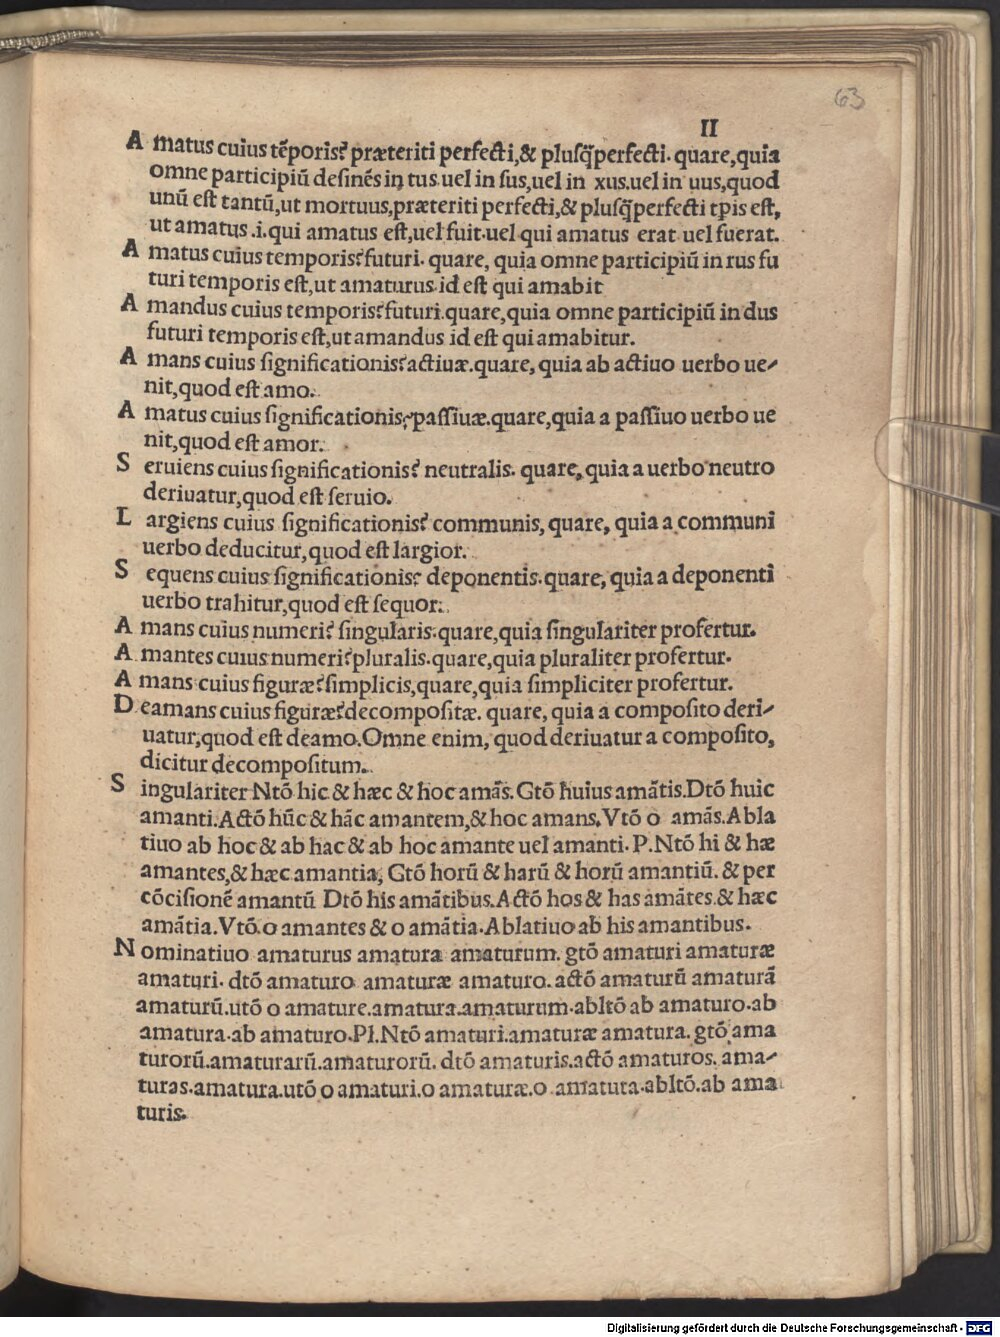 63
II
Amatus cuius tēporis? præteriti perfecti,& plusq̄perfecti. quare,quia
omne participiū desinēs in tus uel in sus,uel in xus.uel in uus,quod
unū est tantū,ut mortuus,præteriti perfecti,& plusq̄perfecti tp̄is est,
ut amatus .i.qui amatus est,uel fuit.uel qui amatus erat uel fuerat.
Amatus cuius temporis?futuri. quare, quia omne participiū in rus fu
turi temporis est,ut amaturus.id est qui amabit
Amandus cuius temporis?futuri.quare,quia omne participiū in dus
futuri temporis est,ut amandus id est qui amabitur.
Amans cuius significationis?actiuæ.quare, quia ab actiuo uerbo ue-
nit,quod est amo.
Amatus cuius significationis?passiuæ.quare,quia a passiuo uerbo ue
nit,quod est amor.
Seruiens cuius significationis? neutralis. quare, quia a uerbo neutro
deriuatur,quod est seruio.
Largiens cuius significationis? communis, quare, quia a communi
uerbo deducitur,quod est largior.
Sequens cuius significationis? deponentis.quare, quia a deponenti
uerbo trahitur,quod est sequor.
Amans cuius numeri? singularis.quare,quia singulariter profertur.
Amantes cuius numeri?pluralis.quare,quia pluraliter profertur.
Amans cuius figuræ?simplicis,quare,quia simpliciter profertur.
Deamans cuius figuræ?decompositæ. quare, quia a composito deri-
uatur,quod est deamo.Omne enim, quod deriuatur a composito,
dicitur decompositum.
Singulariter Ntō hic & hæc & hoc amās. Gtō huius amātis.Dtō huic
amanti.Actō hūc & hāc amantem,& hoc amans.Vtō o amās.Abla
tiuo ab hoc & ab hac & ab hoc amante uel amanti. P.Ntō hi & hæ
amantes,& hæc amantia, Gtō horū & harū & horū amantiū. & per
cōcisionē amantū Dtō his amātibus.Actō hos & has amātes.& hæc
amātia.Vtō.o amantes & o amātia.Ablatiuo ab his amantibus.
Nominatiuo amaturus amatura amaturum. gtō amaturi amaturæ
amaturi. dtō amaturo amaturæ amaturo. actō amaturū amaturā
amaturū.utō o amature.amatura.amaturum.abltō ab amaturo.ab
amatura.ab amaturo.Pl.Ntō amaturi.amaturæ amatura. gtō ama
turorū.amaturarū.amaturorū. dtō amaturis.actō amaturos. ama-
turas.amatura.utō o amaturi.o amaturæ.o amatura.abltō.ab ama
turis.
Digitalisierung gefördert durch die Deutsche Forschungsgemeinschaft - DFG